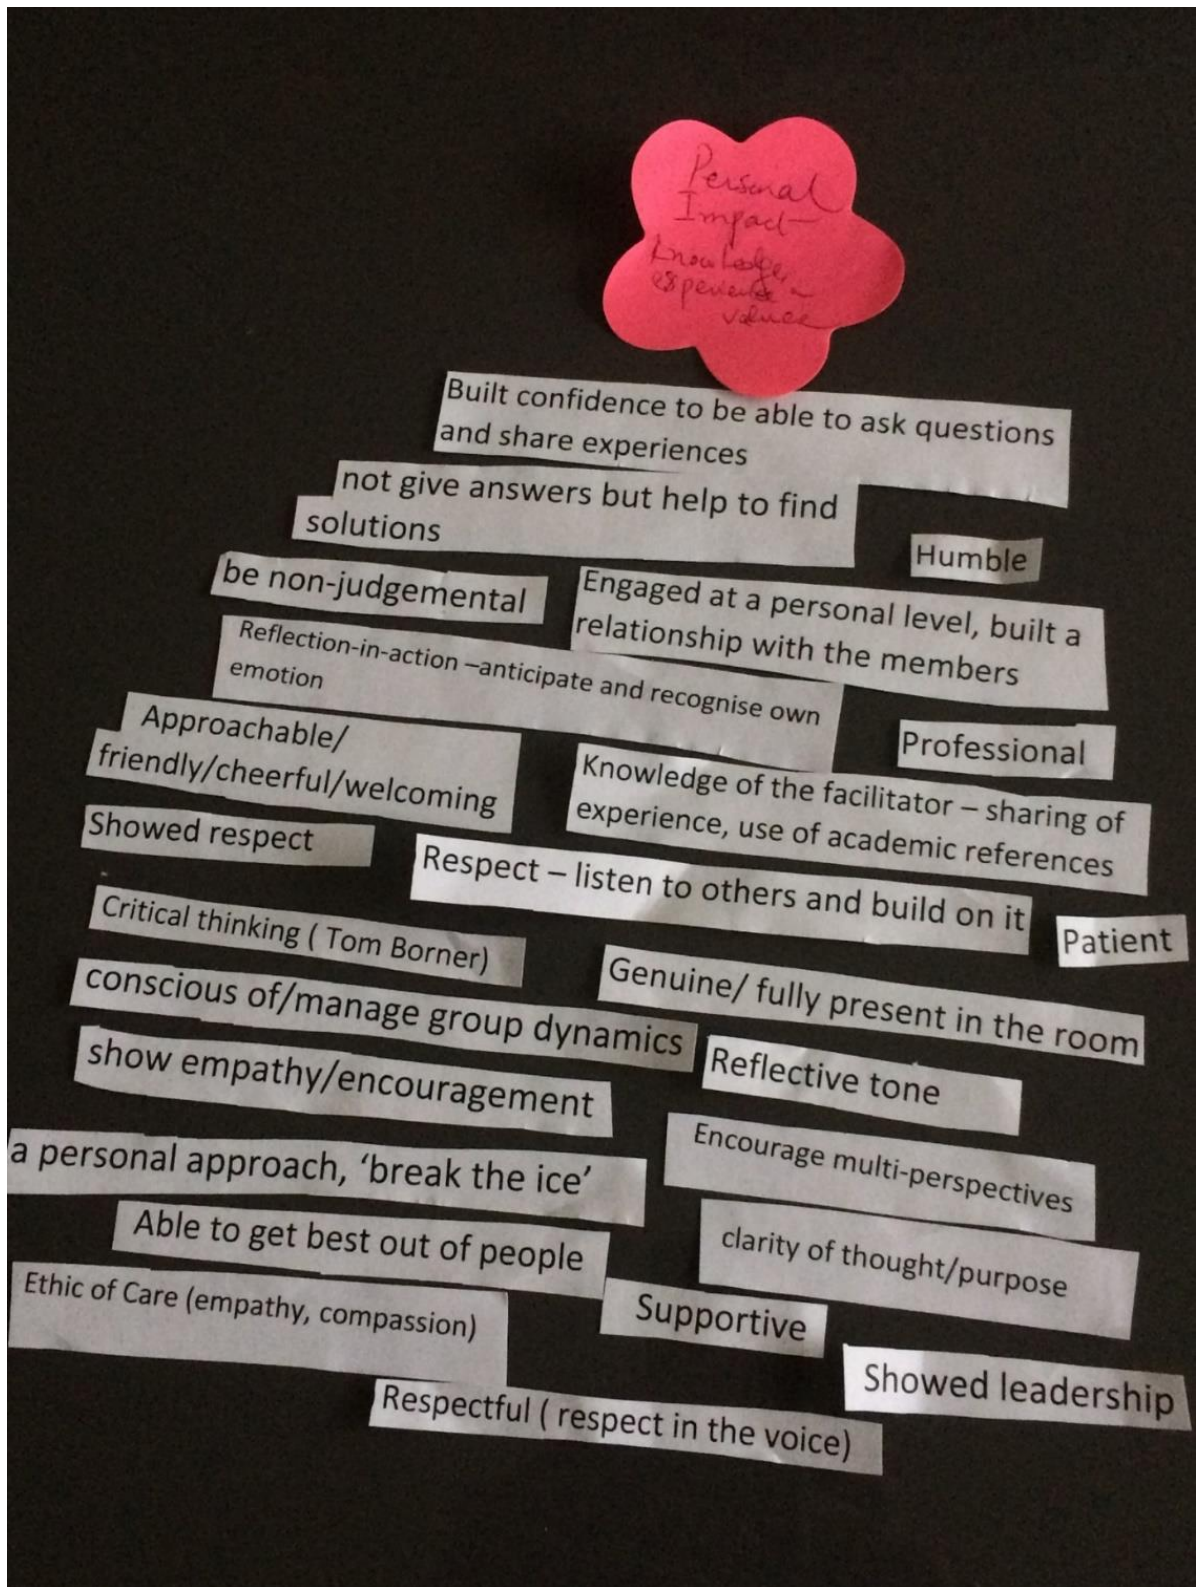 Personal
Impact –
knowledge,
experience
values
Built confidence to be able to ask questions
and share experiences
not give answers but help to find
solutions
Humble
be non-judgemental
Engaged at a personal level, built a
relationship with the members
Reflection-in-action –anticipate and recognise own
emotion
Approachable/
friendly/cheerful/welcoming
Professional
Knowledge of the facilitator – sharing of
experience, use of academic references
Showed respect
Respect – listen to others and build on it
Patient
Critical thinking ( Tom Borner)
Genuine/ fully present in the room
conscious of/manage group dynamics
Reflective tone
show empathy/encouragement
Encourage multi-perspectives
a personal approach, ‘break the ice’
Able to get best out of people
clarity of thought/purpose
Ethic of Care (empathy, compassion)
Supportive
Showed leadership
Respectful ( respect in the voice)